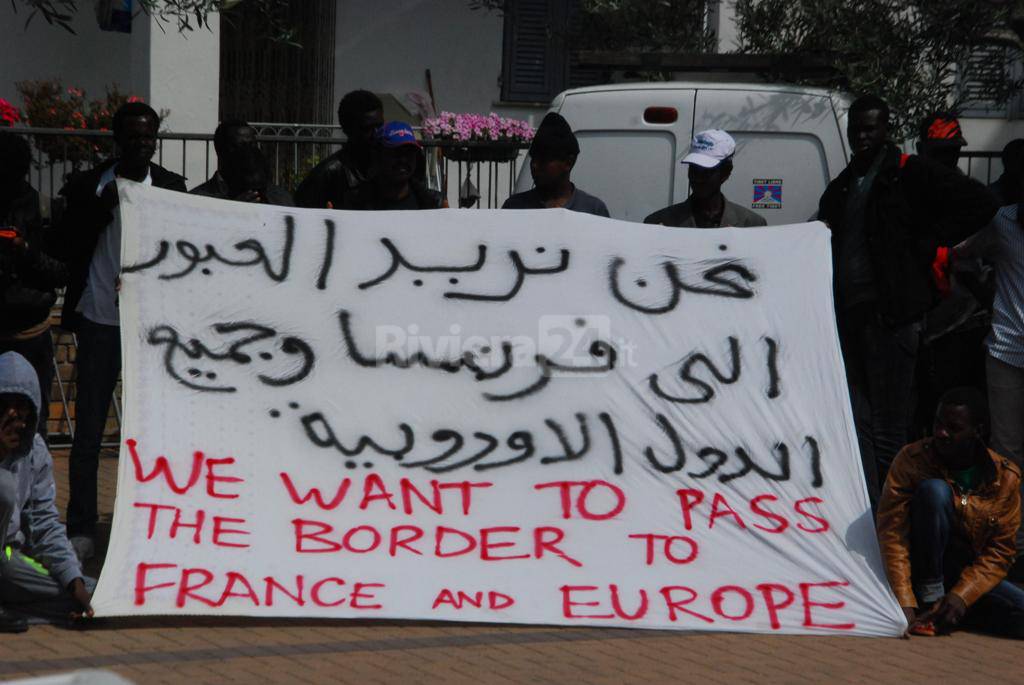 نحن نريد العبور
الى فرنسا وجميع
الدول الاوروبية
WE WANT TO PASS
THE BORDER TO
FRANCE AND EUROPE
Riviera24.it